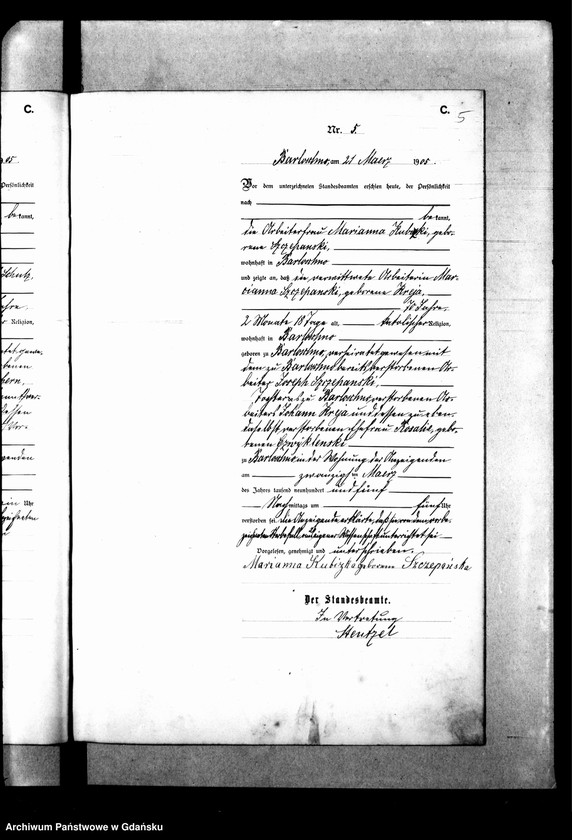 C.
C.
5
Nr. 5.
Bartoschno, am 21 Maerz 1905.
Vor dem unterzeichneten Standesbeamten erschien heute, der Persönlichkeit
nach
bekannt,
die Arbeiterfrau Marianna Kubizki, gebo-
rene Szczepanski,
wohnhaft in
und zeigte an, daß die verwittwete Arbeiterin Mar-
cianna Szczepanski, geborene Kreja,
70 Jahre
2 Monate 18 Tage alt, katolischer Religion,
wohnhaft in
geboren zu verheiratet gewesen mit
dem zu bereits verstorbenen Ar-
beiter Joseph Szczepanski,
Tochter des zu verstorbenen Ar-
beiters Johann Kreja und dessen zu eben-
daselbst verstorbenen Ehefrau Rosalie, gebo-
renen
zu in der Wohnung der Anzeigenden
am zwanzigsten Maerz
des Jahres tausend neunhundert und fünf
Nachmittags um fünf Uhr
verstorben sei. Die Anzeigende erklärte, daß sie von dem vorbe-
zeichneten Sterbefall aus eigener Wissenschaft unterrichtet sei
Vorgelesen, genehmigt und unterschrieben.
Marianna Kubizka geborene Szczepańska
Der Standesbeamte.
In Vertretung
Hentzel
Archiwum Państwowe w Gdańsku